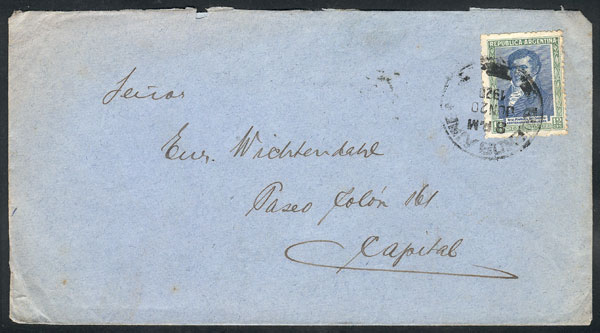 REPUBLICA ARGENTINA
8 P.M
JUN 20
1920
Señor
Eug. Wichtendahl
Paseo Colón 161
Capital